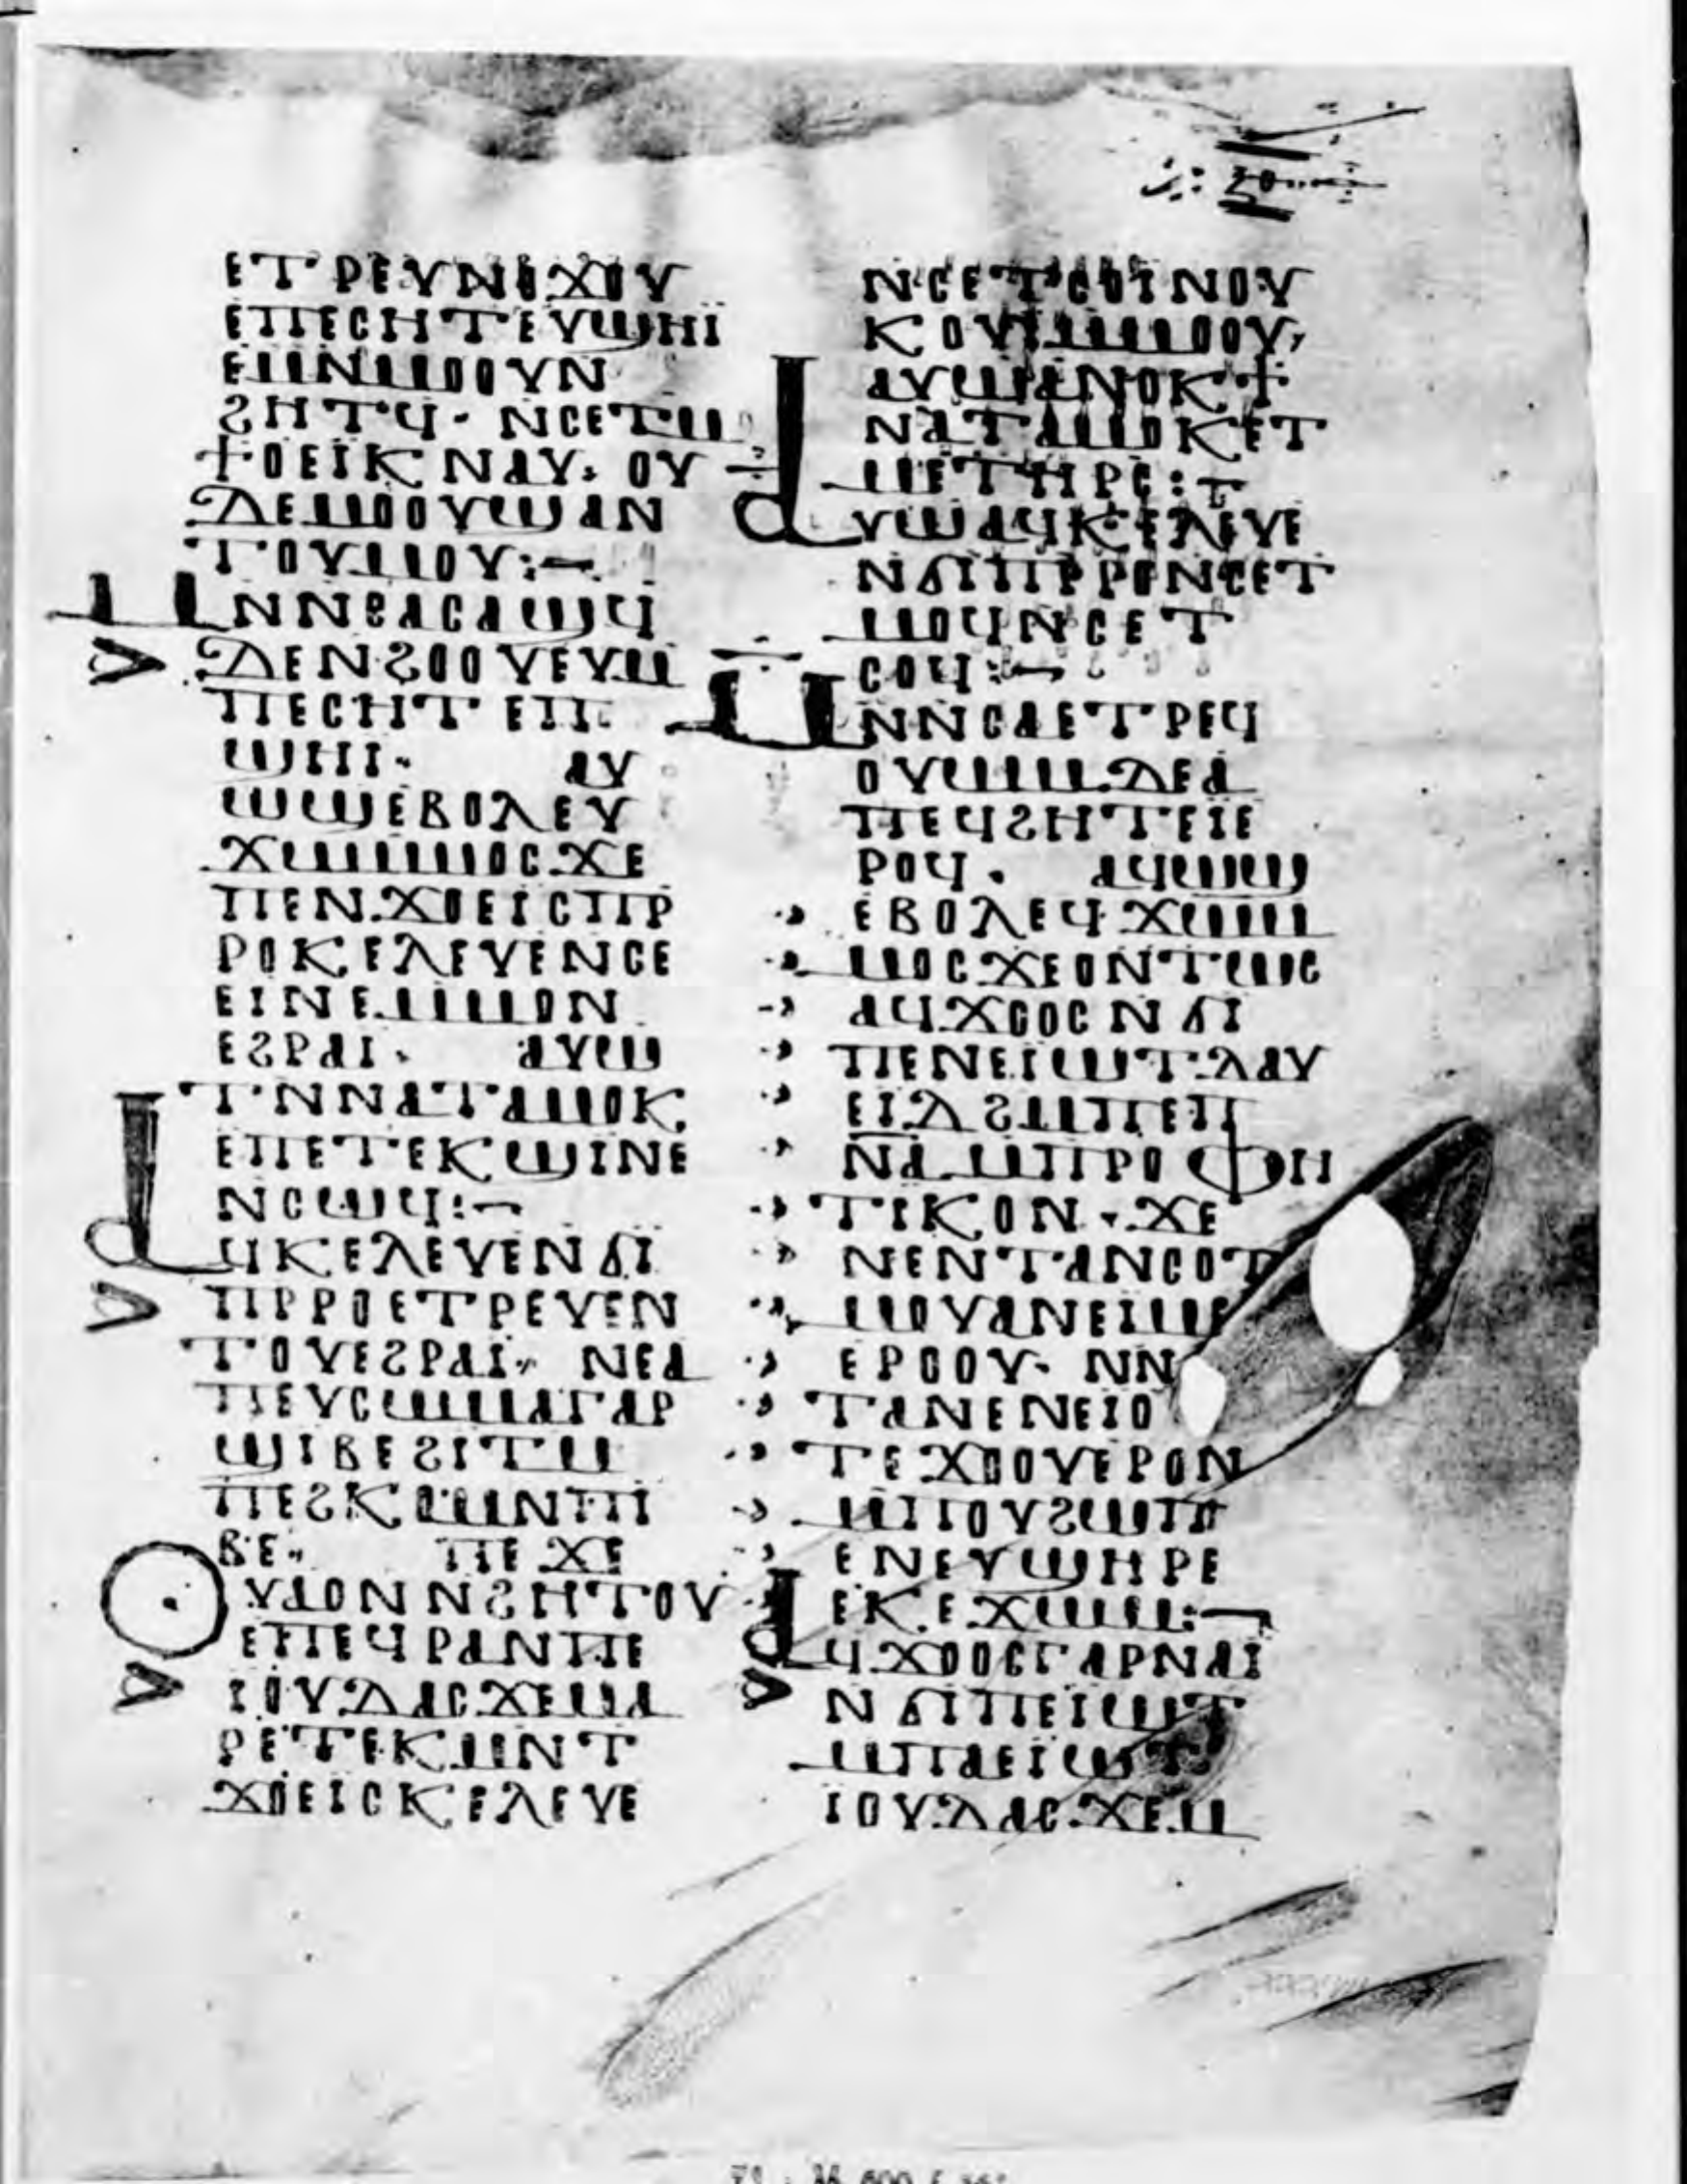 ⲉⲧⲣⲉⲩⲛⲟϫⲟⲩ
ⲉⲡⲉⲥⲏⲧⲉⲩϣⲏⲓ̈
ⲉⲙⲛⲙⲟⲟⲩⲛ
ϩⲏⲧϥ· ⲛⲥⲉⲧⲙ
ϯⲟⲉⲓⲕⲛⲁⲩ· ⲟⲩ
ⲇⲉⲙⲟⲟⲩϣⲁⲛ
ⲧⲟⲩⲙⲟⲩ:—
ⲙⲛⲛⲥⲁⲥⲁϣϥ
ⲇⲉⲛϩⲟⲟⲩⲉⲩⲙ
ⲡⲉⲥⲏⲧⲉⲡ
ϣⲏⲓ· ⲁⲩ
ⲱϣⲉⲃⲟⲗⲉⲩ
ϫⲱⲙⲙⲟⲥϫⲉ
ⲡⲉⲛϫⲟⲉⲓⲥⲡⲣ
ⲣⲟⲕⲉⲗⲉⲩⲉⲛⲥⲉ
ⲉⲓⲛⲉⲙⲙⲟⲛ
ⲉϩⲣⲁⲓ· ⲁⲩⲱ
ⲧⲛⲛⲁⲧⲁⲙⲟⲕ
ⲉⲡⲉⲧⲉⲕϣⲓⲛⲉ
ⲛⲥⲱϥ:—
ⲁϥⲕⲉⲗⲉⲩⲉⲛϭⲓ
ⲡⲣⲣⲟⲉⲧⲣⲉⲩⲉⲛ
ⲧⲟⲩⲉϩⲣⲁⲓ̈· ⲛⲉⲁ
ⲡⲉⲩⲥⲱⲙⲁⲅⲁⲣ
ϣⲓⲃⲉϩⲓⲧⲙ
ⲡⲉϩⲕⲟⲙⲛⲡⲓ
ⲃⲉ· ⲡⲉϫⲉ
ⲟⲩⲁⲟⲛⲛϩⲏⲧⲟⲩ
ⲉⲡⲉϥⲣⲁⲛⲡⲉ
ⲓⲟⲩⲇⲁⲥϫⲉⲙⲁ
ⲣⲉⲧⲉⲕⲙⲛⲧ
ϫⲟⲉⲓⲥⲕⲉⲗⲉⲩⲉ
ⲛⲥⲉⲧⲥⲟⲓⲛⲟⲩ
ⲕⲟⲩⲓⲙⲙⲟⲟⲩ,
ⲁⲩⲱⲁⲛⲟⲕϯ
ⲛⲁⲧⲁⲙⲟⲕⲉⲧ
ⲙⲉⲧⲏⲣⲥ:—
ⲁⲩⲱⲁϥⲕⲉⲗⲉⲩⲉ
ⲛϭⲓⲡⲣⲣⲟⲛⲥⲉⲧ
ⲙⲟϥⲛⲥⲉⲧ
ⲥⲟϥ:—
ⲙⲛⲛⲥⲁⲉⲧⲣⲉϥ
ⲟⲩⲱⲙⲇⲉⲁ
ⲡⲉϥϩⲏⲧⲉⲓⲉ
ⲣⲟϥ· ⲁϥⲱϣ
ⲉⲃⲟⲗⲉϥϫⲱⲙ
ⲙⲟⲥϫⲉⲟⲛⲧⲱⲥ
ⲁϥϫⲟⲟⲥⲛϭⲓ
ⲡⲉⲛⲉⲓⲱⲧⲇⲁⲩ
ⲉⲓⲇϩⲙⲡⲉⲡ
ⲛⲁⲙⲡⲣⲟⲫⲏ
ⲧⲓⲕⲟⲛ· ϫⲉ
ⲛⲉⲛⲧⲁⲛⲥⲟⲧ
ⲙⲟⲩⲁⲛⲉⲓⲙⲉ
ⲉⲣⲟⲟⲩ· ⲛⲛ
ⲧⲁⲛⲉⲛⲉⲓⲟ
ⲧⲉϫⲟⲟⲩⲉⲣⲟⲛ
ⲙⲡⲟⲩϩⲱⲡ
ⲉⲛⲉⲩϣⲏⲣⲉ
ⲉⲕⲉϫⲱⲙ:—
ⲁϥϫⲟⲟⲥⲅⲁⲣⲛⲁⲓ
ⲛϭⲓⲡⲉⲓⲱⲧ
ⲙⲡⲁⲉⲓⲱⲧ
ⲓⲟⲩⲇⲁⲥϫⲉⲙ